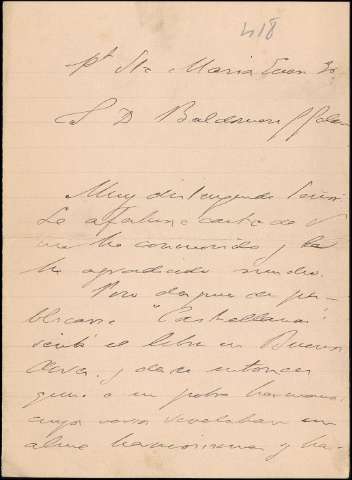 418
Pto Sta Maria Enero 30
S. D. Baldomero
Muy distinguido Señor
La afectuosa carta de V
me ha conmovido y la
he agradecido mucho.
Poco despues de pu-
blicarse "Castellanas"
el libro en Buenos
Aires y desde entonces
a un poeta hermano
cuyos versos revelaban un
alma hermosísima y